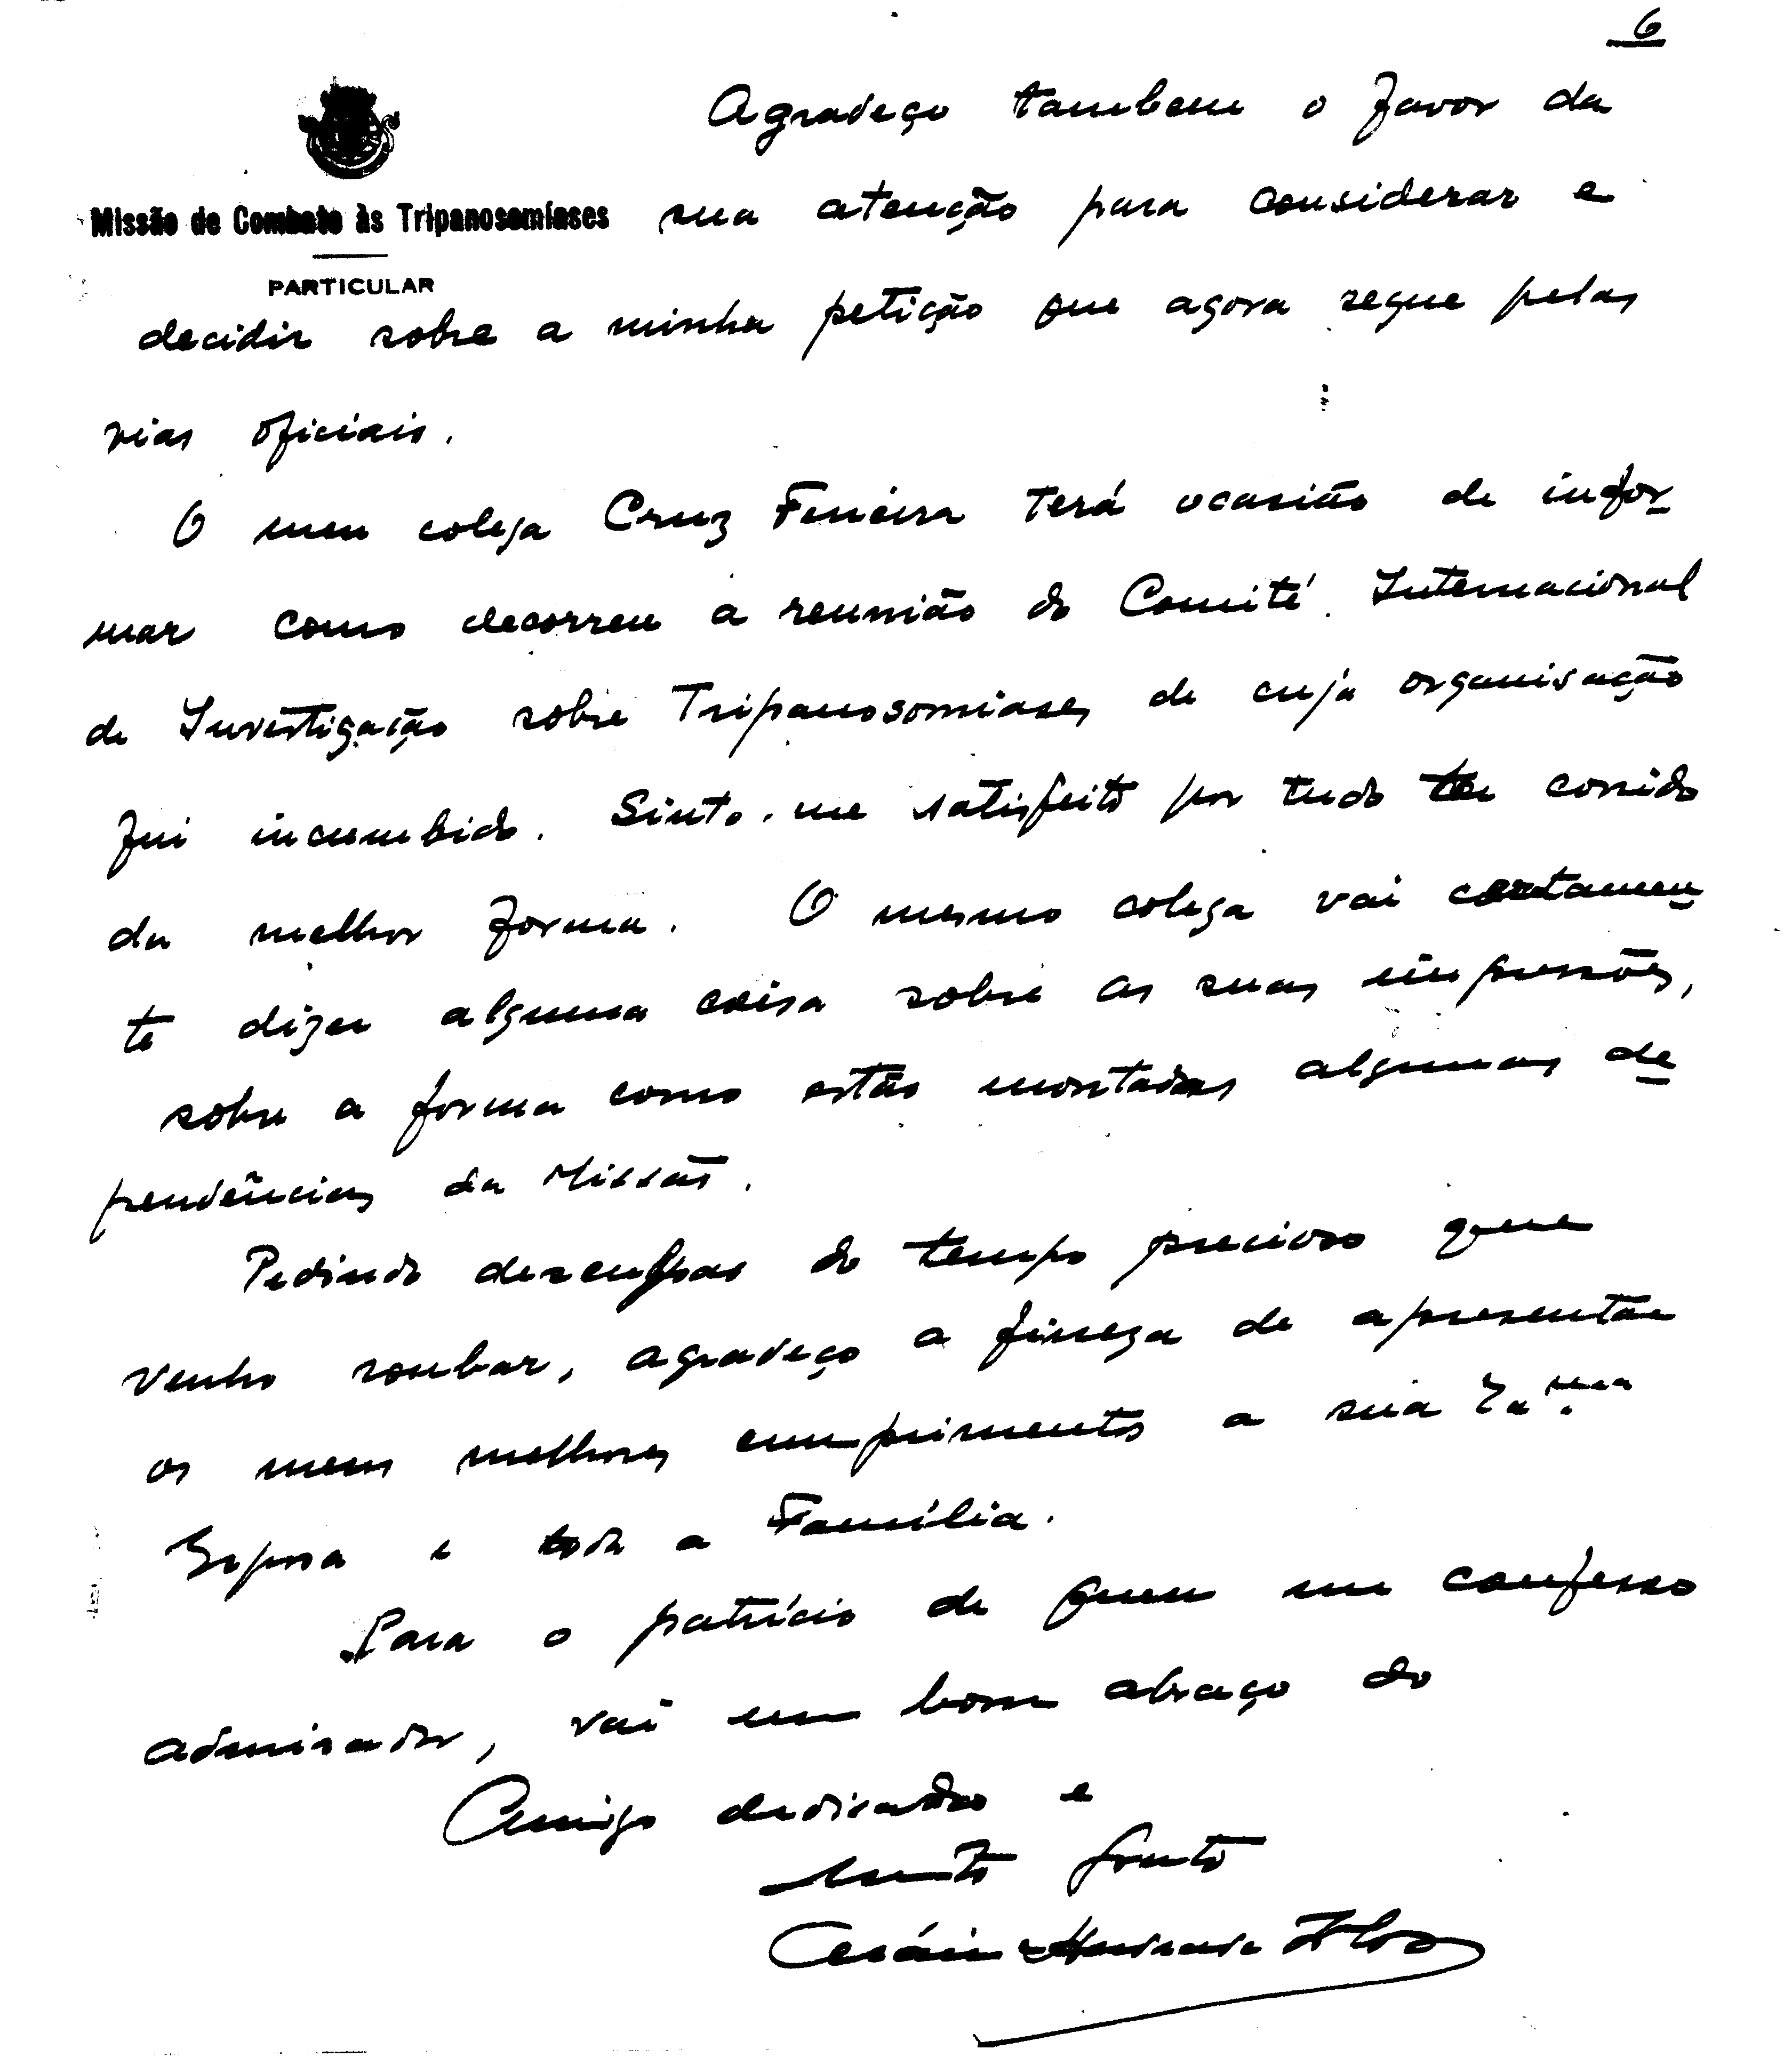 6
Agradeço tambem o favor da
Missão de Combate às Tripanosomíases
sua atenção para considerar e
PARTICULAR
decidir sobre a minha petição que agora segue pelas
vias oficiais.
O meu colega Cruz Ferreira terá ocasião de infor-
mar como decorreu a reunião do Comité Internacional
de Investigação sobre Tripanosomiases de cuja organisação
fui incumbido. Sinto-me satisfeito por tudo ter corrido
da melhor forma. O mesmo colega vai certamen-
te dizer alguma coisa sobre as suas impressões,
sobre a forma como estão montadas algumas de-
pendências da Missão.
Pedindo desculpas do tempo precioso que
venho roubar, agradeço a fineza de apresentar
os meus melhores cumprimentos a sua Exma
Esposa e toda a Família.
Para o patrício de quem me confesso
admirador, vai um bom abraço do
Amigo dedicado e
Muito grato